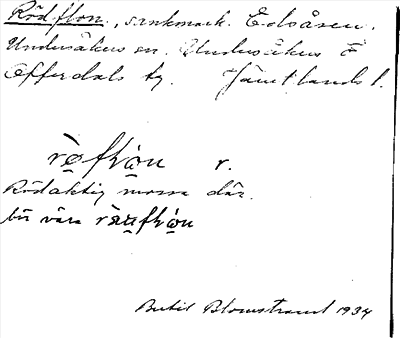 Rödflon, sankmark. Edsåsen.
Undersåkers sn. Undersåkers o
Offerdals tg. Jämtlands l.
r.
Rödaktig mossa där.
bör vara
Bertil Blomstrand 1934